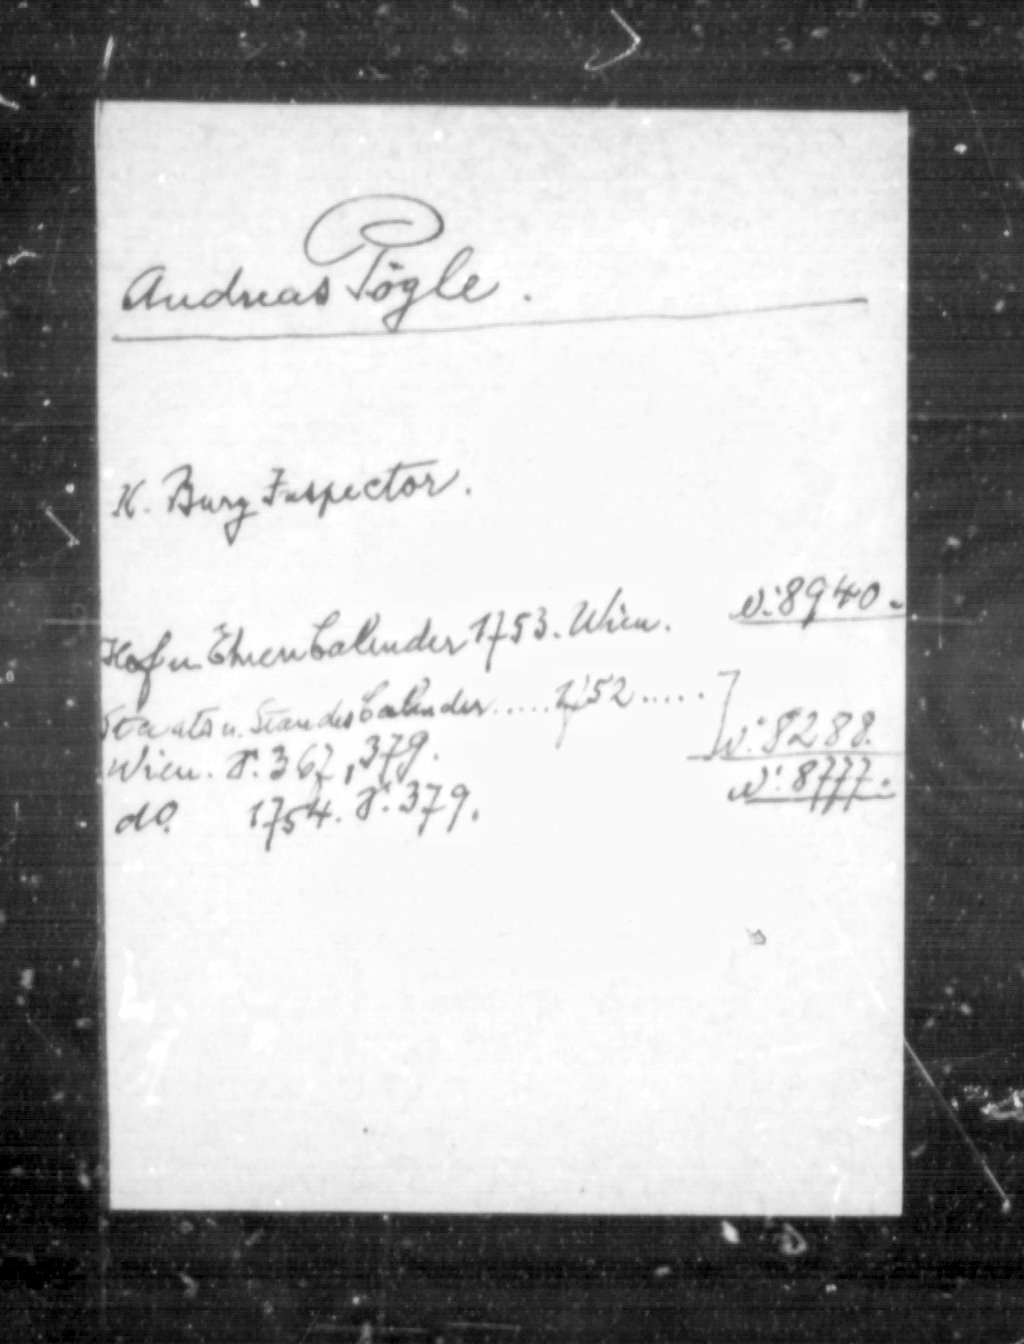 Andreas Pögle.
K. Burg Inspector.
Hof u. Ehren Calender 1753. Wien. N: 8940.
Staats u. Standes Calender ..... 1752 .....
Wien. S. 367, 379. N: 8288.
do. 1754. S. 379. N: 8777.